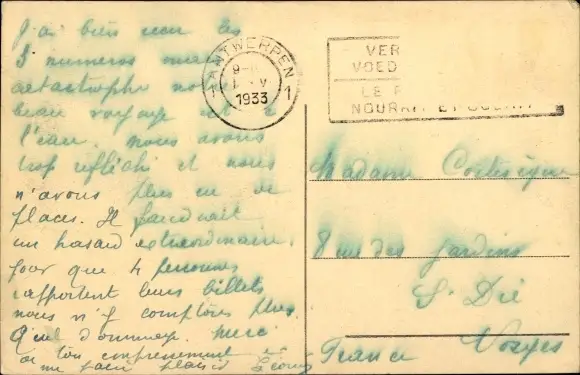 J'ai bien reçu les
3 numéros
catastrophe
beau voyage est à
l'eau. nous avons
trop réfléchi et nous
n'avons plus eu de
places. Il faudrait
un hasard extraordinaire,
pour que 4 personnes
rapportent leurs billets
nous n'y comptons plus.
Quel dommage. Merci
de ton empressement et
me faire plaisir
ANTWERPEN 1
9
V
1933
1
VER
VOED
LE F
NOURRIT ET GUERIT
Madame
8 rue des Jardins
St Dié
France Vosges